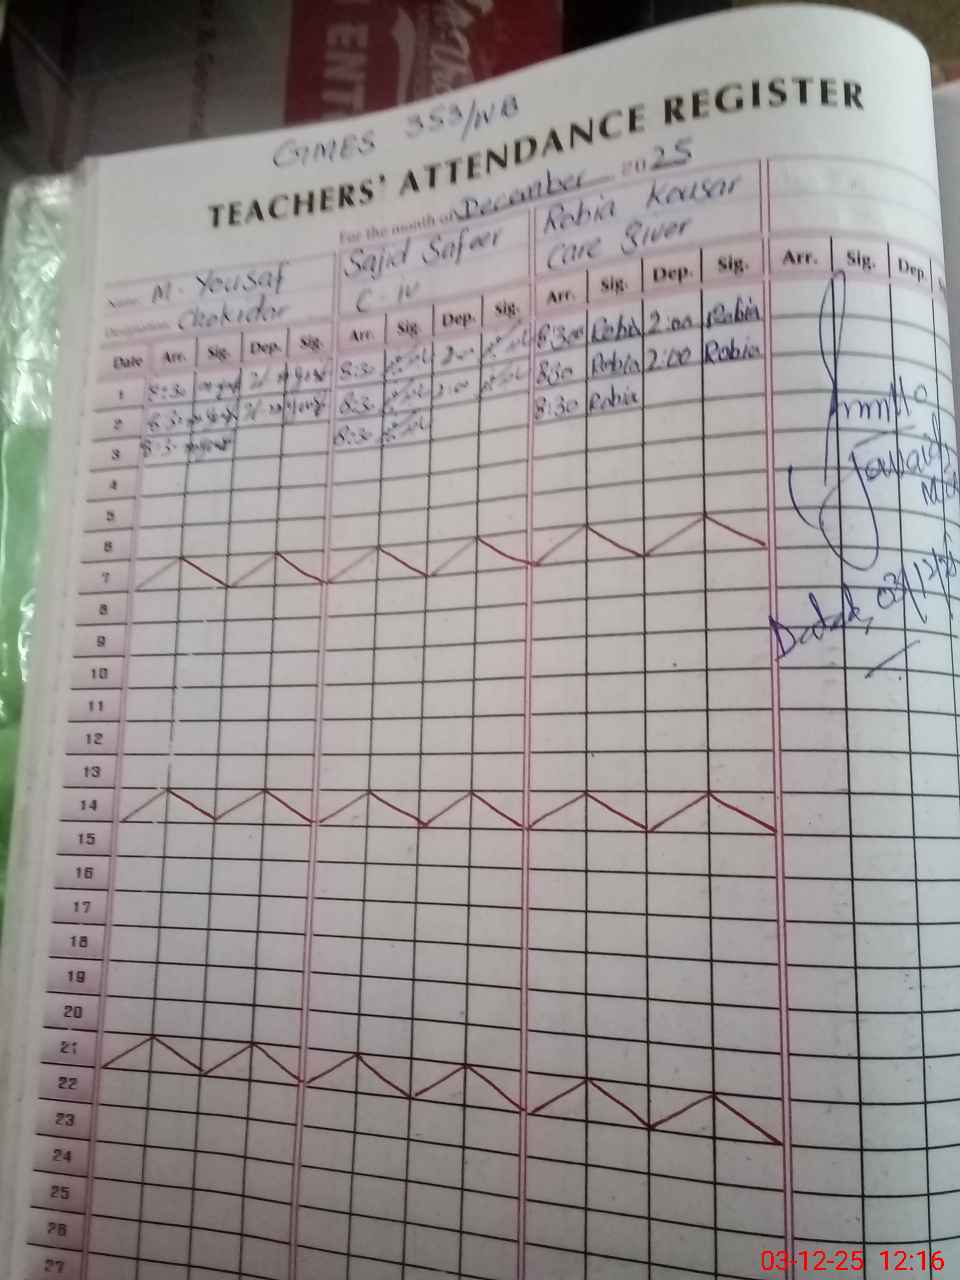 GMES 353/WB
TEACHERS' ATTENDANCE REGISTER
For the month of December 2025
Name M. Yousaf Sajid Safeer Robia Kousar
Designation Chokidar C-IV Care Giver
Date Arr. Sig. Dep. Sig. Arr. Sig. Dep. Sig. Arr. Sig. Dep. Sig. Arr. Sig. Dep.
1 8:30 8:30 2:00 8:300 Robia 2:00 Robia
2 8:30 8:30 2:00 830 Robia 2:00 Robia
3 8:30 8:30 8:30 Robia
4
5
6
7
8
9
10
11
12
13
14
15
16
17
18
19
20
21
22
23
24
25
26
27
Dated, 03/12/25
03-12-25 12:16